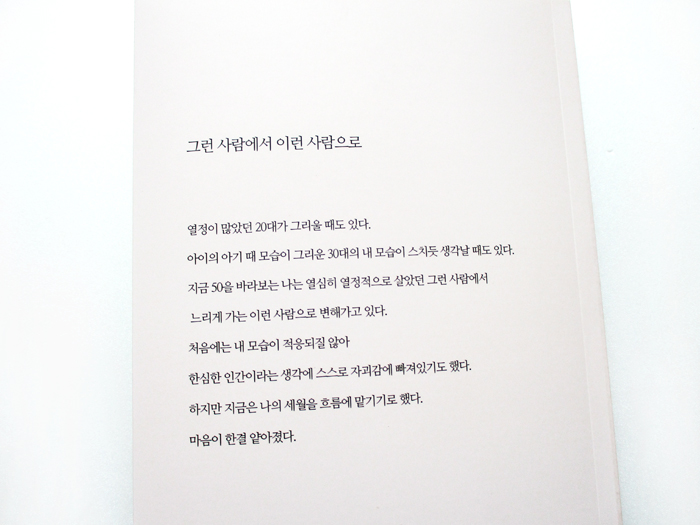 그런 사람에서 이런 사람으로
열정이 많았던 20대가 그리울 때도 있다.
아이의 아기 때 모습이 그리운 30대의 내 모습이 스치듯 생각날 때도 있다.
지금 50을 바라보는 나는 열심히 열정적으로 살았던 그런 사람에서
느리게 가는 이런 사람으로 변해가고 있다.
처음에는 내 모습이 적응되질 않아
한심한 인간이라는 생각에 스스로 자괴감에 빠져있기도 했다.
하지만 지금은 나의 세월을 흐름에 맡기기로 했다.
마음이 한결 얕아졌다.